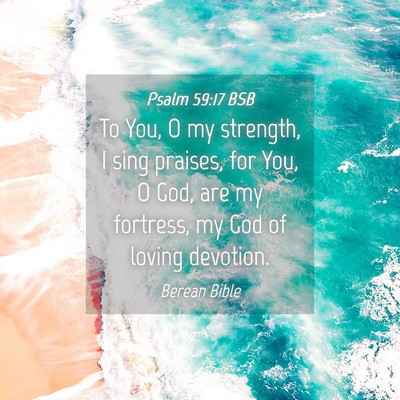 Psalm 59:17 BSB
To You, O my strength,
I sing praises, for You,
O God, are my
fortress, my God of
loving devotion.
Berean Bible